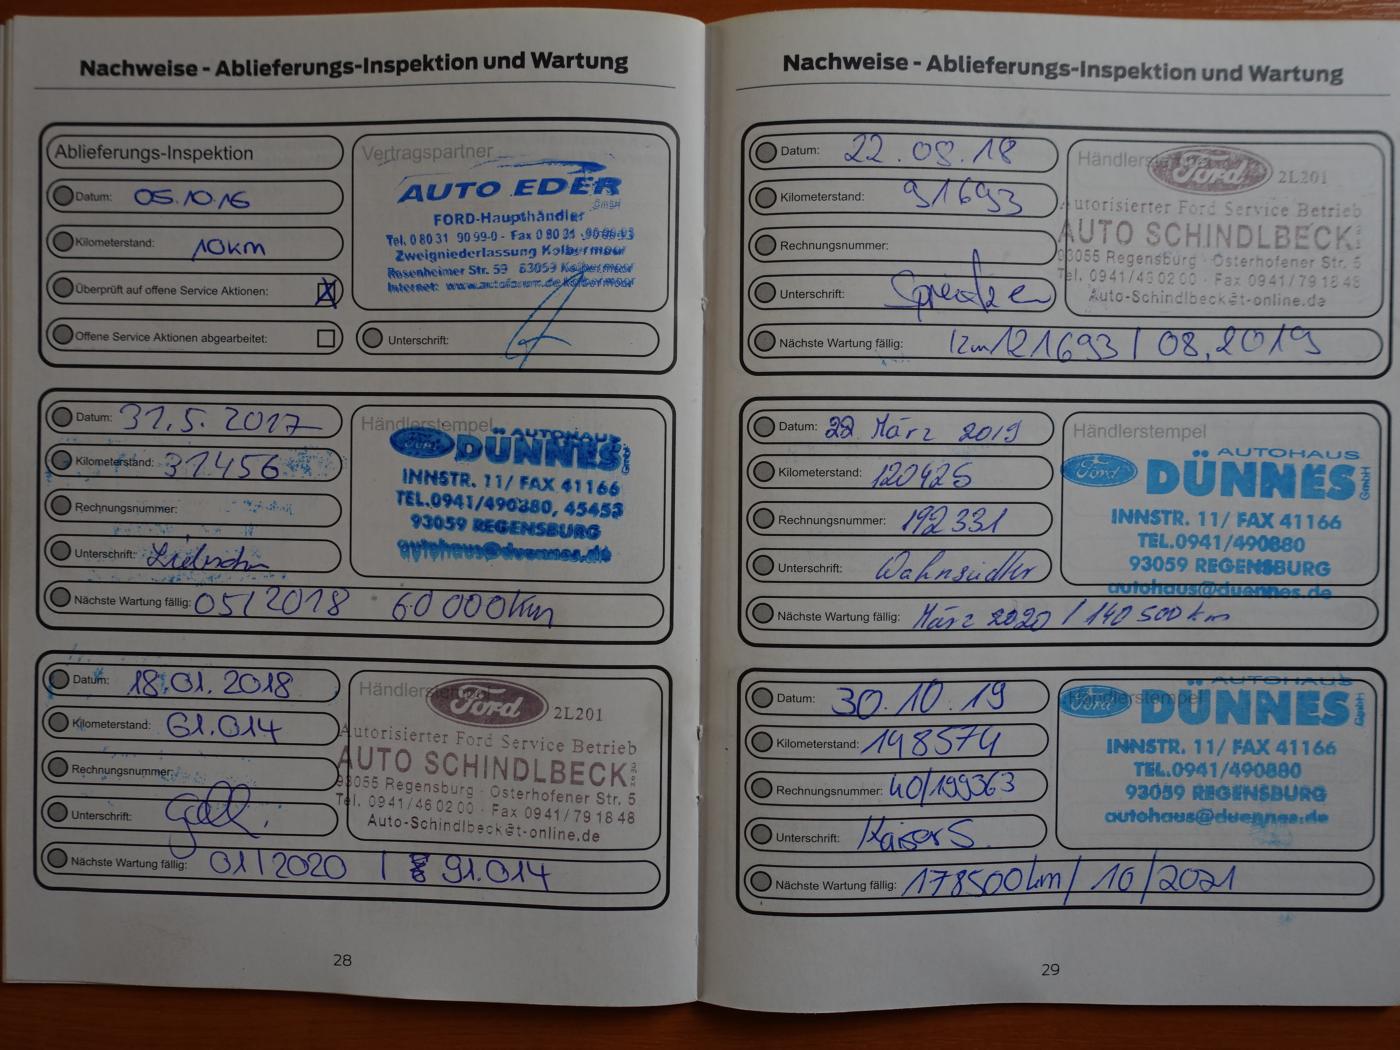 Nachweise - Ablieferungs-Inspektion und Wartung
Ablieferungs-Inspektion
Datum: 05.10.16
Kilometerstand: 10km
Überprüft auf offene Service Aktionen: X
Offene Service Aktionen abgearbeitet:
Vertragspartner
AUTO EDER
GmbH
FORD-Haupthändler
Tel. 0 80 31 90 99-0 - Fax 0 80 31
Zweigniederlassung Kolbermoor
Rosenheimer Str. 59 83059 Kolbermoor
Internet:
Unterschrift:
Datum: 31.5.2017
Kilometerstand: 31456
Rechnungsnummer:
Unterschrift:
Nächste Wartung fällig: 05/2018 60 000km
Händlerstempel
Ford AUTOHAUS
DÜNNES GmbH
INNSTR. 11/ FAX 41166
TEL.0941/490880, 45453
93059 REGENSBURG
autohaus@duennes.de
Datum: 18.01.2018
Kilometerstand: 61.014
Rechnungsnummer:
Unterschrift:
Nächste Wartung fällig: 01/2020 / 91.014
Händlerstempel
Ford 2L201
Autorisierter Ford Service Betrieb
AUTO SCHINDLBECK
93055 Regensburg · Osterhofener Str. 5
Tel. 0941/46 02 00 · Fax 0941/79 18 48
Auto-Schindlbeck@t-online.de
28
Nachweise - Ablieferungs-Inspektion und Wartung
Datum: 22.08.18
Kilometerstand: 91693
Rechnungsnummer:
Unterschrift:
Nächste Wartung fällig: km 121693 / 08.2019
Händlerstempel
Ford 2L201
Autorisierter Ford Service Betrieb
AUTO SCHINDLBECK
93055 Regensburg · Osterhofener Str. 5
Tel. 0941/46 02 00 · Fax 0941/79 18 48
Auto-Schindlbeck@t-online.de
Datum: 22 März 2019
Kilometerstand: 120425
Rechnungsnummer: 192331
Unterschrift:
Nächste Wartung fällig: März 2020 / 140 500 km
Händlerstempel
Ford AUTOHAUS
DÜNNES GmbH
INNSTR. 11/ FAX 41166
TEL.0941/490880
93059 REGENSBURG
autohaus@duennes.de
Datum: 30.10.19
Kilometerstand: 148574
Rechnungsnummer: 40/199363
Unterschrift: Kaiser S.
Nächste Wartung fällig: 178500km / 10/2021
Händlerstempel
Ford AUTOHAUS
DÜNNES GmbH
INNSTR. 11/ FAX 41166
TEL.0941/490880
93059 REGENSBURG
autohaus@duennes.de
29